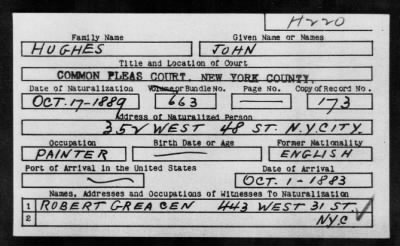 H220
Family Name Given Name or Names
HUGHES JOHN
Title and Location of Court
COMMON PLEAS COURT, NEW YORK COUNTY.
Date of Naturalization Volume or Bundle No. Page No. Copy of Record No.
OCT. 17-1889 663 — 173
Address of Naturalized Person
352 WEST 48 ST. N.Y.CITY.
Occupation Birth Date or Age Former Nationality
PAINTER — ENGLISH
Port of Arrival in the United States Date of Arrival
— OCT. 1-1883
Names, Addresses and Occupations of Witnesses To Naturalization
1 ROBERT GREACEN 443 WEST 31 ST.
2 N.Y.C